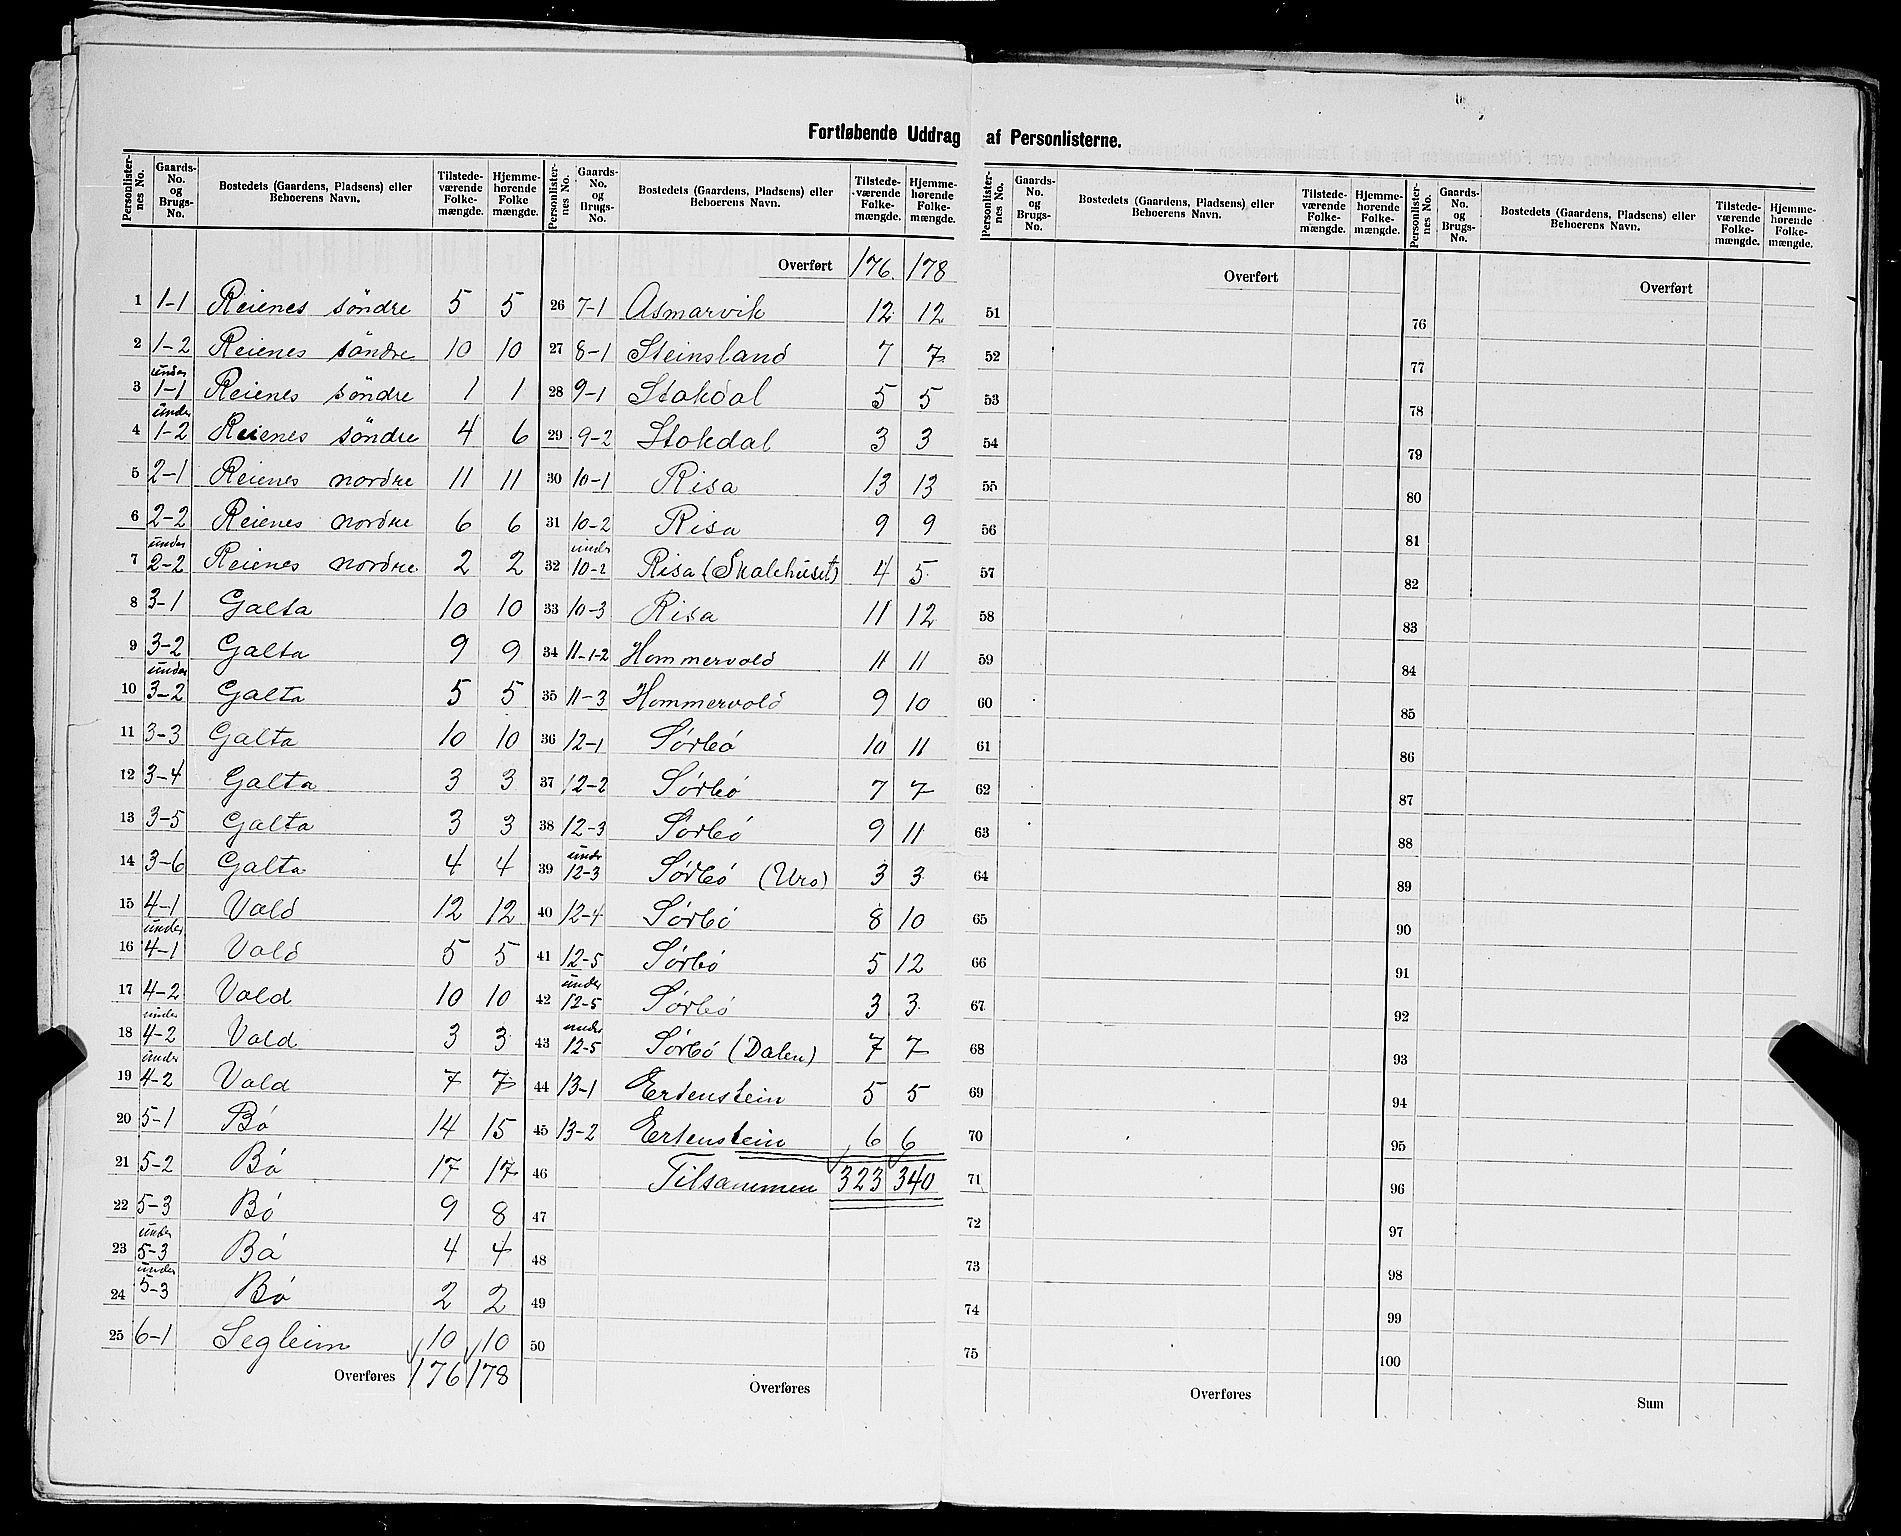 Fortløbende Uddrag af Personlisterne.
Personlister-nes No. | Gaards-No. og Brugs-No. | Bostedets (Gaardens, Pladsens) eller Beboerens Navn. | Tilstede-værende Folke-mængde. | Hjemme-hørende Folke mængde.
1 1-1 Reienes söndre 5 5
2 1-2 Reienes söndre 10 10
3 under 1-1 Reienes söndre 1 1
4 under 1-2 Reienes söndre 4 6
5 2-1 Reienes nordre 11 11
6 2-2 Reienes nordre 6 6
7 under 2-2 Reienes nordre 2 2
8 3-1 Galta 10 10
9 3-2 Galta 9 9
10 under 3-2 Galta 5 5
11 3-3 Galta 10 10
12 3-4 Galta 3 3
13 3-5 Galta 3 3
14 3-6 Galta 4 4
15 4-1 Vold 12 12
16 under 4-1 Vold 5 5
17 4-2 Vold 10 10
18 under 4-2 Vold 3 3
19 under 4-2 Vold 7 7
20 5-1 Bó 14 15
21 5-2 Bó 17 17
22 5-3 Bó 9 8
23 under 5-3 Bó 4 4
24 under 5-3 Bó 2 2
25 6-1 Segleim 10 10
Overføres 176 178
Personlister-nes No. | Gaards-No. og Brugs-No. | Bostedets (Gaardens, Pladsens) eller Beboerens Navn. | Tilstede-værende Folke-mængde. | Hjemme-hørende Folke-mængde.
Overført 176. 178
26 7-1 Asmarvik 12 12
27 8-1 Steinsland 7 7
28 9-1 Stokdal 5 5
29 9-2 Stokdal 3 3
30 10-1 Risa 13 13
31 10-2 Risa 9 9
32 under 10-2 Risa (Skalehuset) 4 5
33 10-3 Risa 11 12
34 11-1-2 Hommervold 11 11
35 11-3 Hommervold 9 10
36 12-1 Sørbó 10 11
37 12-2 Sørbó 7 7
38 12-3 Sørbó 9 11
39 under 12-3 Sørbó (Uro) 3 3
40 12-4 Sørbó 8 10
41 12-5 Sørbó 5 12
42 under 12-5 Sørbó 3 3
43 under 12-5 Sørbó (Dalen) 7 7
44 13-1 Ertenstein 5 5
45 13-2 Ertenstein 6 6
46 Tilsammen 323 340
47
48
49
50
Overføres
Personlister-nes No. | Gaards-No. og Brugs-No. | Bostedets (Gaardens, Pladsens) eller Beboerens Navn. | Tilstede-værende Folke-mængde. | Hjemme-hørende Folke-mængde.
Overført
51
52
53
54
55
56
57
58
59
60
61
62
63
64
65
66
67
68
69
70
71
72
73
74
75
Overføres
Personlister-nes No. | Gaards-No. og Brugs-No. | Bostedets (Gaardens, Pladsens) eller Beboerens Navn. | Tilstede-værende Folke-mængde. | Hjemme-hørende Folke-mængde.
Overført
76
77
78
79
80
81
82
83
84
85
86
87
88
89
90
91
92
93
94
95
96
97
98
99
100
Sum